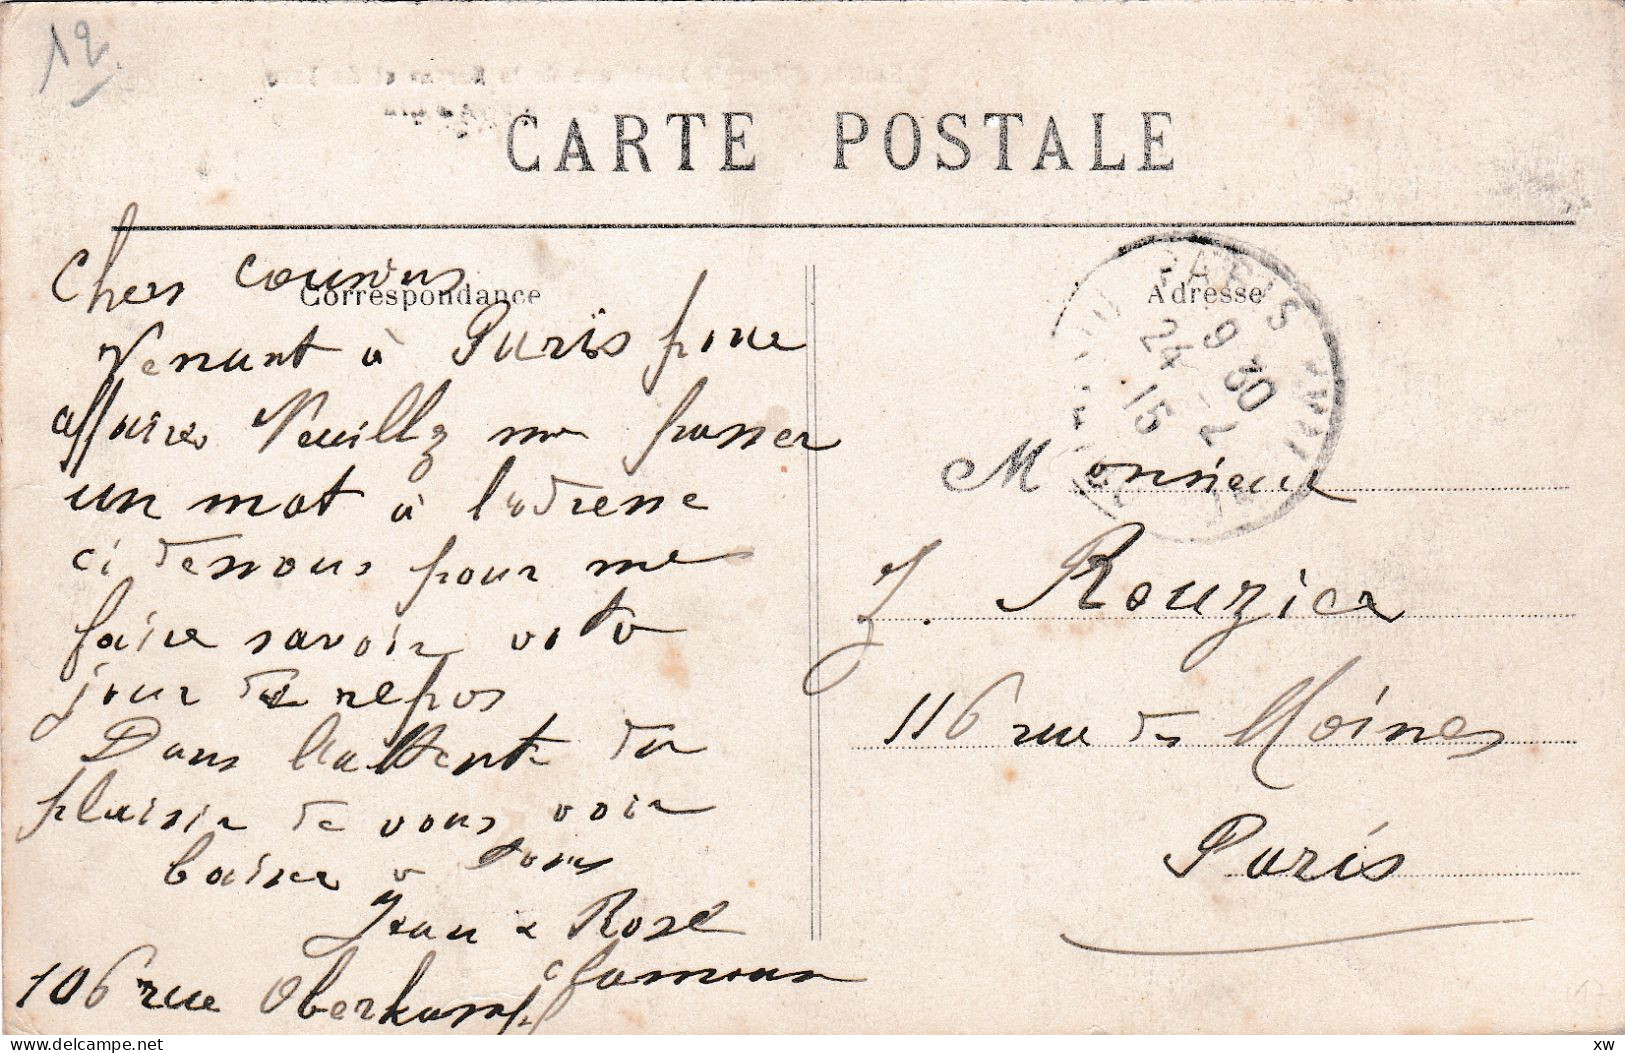 12
CARTE POSTALE
Correspondance
Adresse
PARIS
9 30
24 - 2
15
Chers cousins
Venant à Paris pour
affaires Veuillez me passer
un mot à l'adresse
ci dessous pour me
faire savoir voto
jour de repos
Dans l'attente du
plaisir de vous voir
baise à tous
Jean & Rose
106 rue Oberkampf
Monsieur
J. Rouzies
116 rue des Moines
Paris
delcampe.net
xw